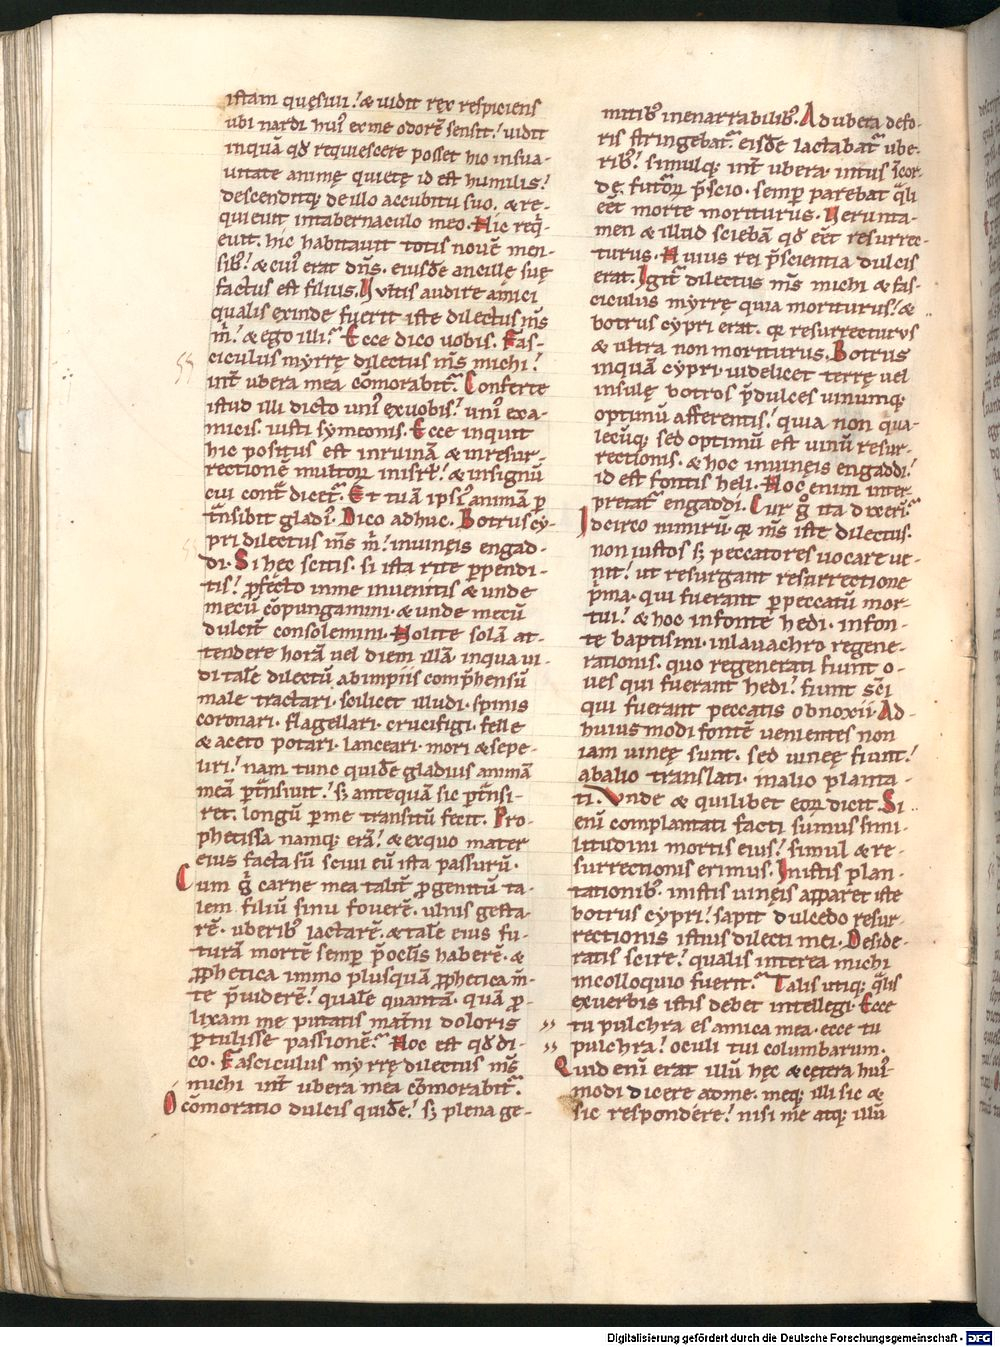 istam quęsiui! & uidit rex respiciens
ubi nardi hui' ex me odorē sensit! uidit
inquā qđ requiescere posset hic in sua-
uitate animę quietę id est humilis!
descenditq; de illo accubitu suo. & re-
quieuit in tabernaculo meo. Hic req̇-
euit. hic habitauit totis nouē men-
sib'! & cui' erat dn̄s. eiusdē ancillę suę
factus est filius. Vultis audire amici
qualis exinde fuerit iste dilectus m̄s
m̄! & ego illi? Ecce dico uobis. Fas-
ciculus myrrę dilectus m̄s michi!
int̄ ubera mea cōmorabit̄. Conferte
istud illi dicto uni' ex uobis! uni' ex a-
micis. iusti symeonis. Ecce inquit
hic positus est in ruinā & in resur-
rectionē multoꝝ in isrl̄! & in signū
cui cont̄ dicet̄. Et tuā ipsi' animā ꝑ
t̄nsibit gladi'. Dico adhuc. Botrus cy-
pri dilectus m̄s m̄! in uinęis engad-
di. Si hęc scitis. si ista rite ꝑpendi-
tis! ꝓfecto in me inuenitis & unde
mecū cōpungamini. & unde mecū
dulcit̄ consolemini. Nolite solā at-
tendere horā uel diem illā. in qua ui-
di talē dilectū ab impiis comp̄hensū
male tractari. scilicet illudi. spinis
coronari. flagellari. crucifigi. felle
& aceto potari. lanceari. mori & sepe-
liri! nam tunc quidē gladius animā
meā ꝑt̄nsiuit! s; antequā sic ꝑt̄nsi-
ret. longū ꝑ me transitū fecit. Pro-
phetissa namq; erā! & ex quo mater
eius facta sū sciui eū ista passurū.
Cum g̊ carne mea talit̄ ꝓgenitū ta-
lem filiū sinu fouerē. ulnis gesta-
rē. uberib' lactarē. & talē eius fu-
turā mortē semꝑ p̄ oclīs haberē. &
ꝓphetica immo plusquā ꝓphetica m̄-
te p̄uiderē! qualē quantā. quā ꝓ-
lixam me putatis mat̄ni doloris
ꝑtulisse passionē? Hoc est qđ di-
co. Fasciculus myrrę dilectus m̄s
michi int̄ ubera mea cōmorabit̄.
O cōmoratio dulcis quidē! s; plena ge-
mitib' inenarrabilib'. Ad ubera defo-
ris stringebat̄. eisdē lactabat̄ ube-
rib'! simulq; int̄ ubera intus ī cor-
dę. futuroꝝ p̄scio. semꝑ parebat q̄li
eēt morte moriturus. Verunta-
men & illud sciebā qđ eēt resurrec-
turus. Huius rei p̄scientia dulcis
erat. Igit̄ dilectus m̄s michi & fas-
ciculus myrrę quia moriturus! &
botrus cypri erat. q̄ resurrecturus
& ultra non moriturus. Botrus
inquā cypri. uidelicet terrę uel
insulę botros p̄dulces uinumq;
optimū afferentis! quia non qua-
lecūq; sed optimū est uinū resur-
rectionis. & hoc in uinęis engaddi!
id est fontis heli. Hoc enim inter-
pretat̄ engaddi. Cur g̊ ita dixeri?
Idcirco nimirū. q̄ m̄s iste dilectus.
non iustos s; peccatores uocare ue-
nit! ut resurgant resurrectione
p̄ma. qui fuerant ꝑ peccatū mor-
tui! & hoc in fonte hedi. in fon-
te baptismi. in lauachro regene-
rationis. quo regenerati fiunt o-
ues qui fuerant hedi! fiunt sc̄i
qui fuerant peccatis obnoxii. Ad
huius modi fontē uenientes non
iam uineę sunt. sed uineę fiunt!
ab alio translati. in alio planta-
ti. Vnde & quilibet eoꝝ dicit. Si
enī complantati facti sumus simi-
litudini mortis eius! simul & re-
surrectionis erimus. In istis plan-
tationib'. in istis uinęis apparet iste
botrus cypri! sapit dulcedo resur-
rectionis istius dilecti mei. Deside-
ratis scire! qualis interea michi
in colloquio fuerit? Talis utiq; q̄lis
ex uerbis istis debet intellegi. Ecce
tu pulchra es amica mea. ecce tu
pulchra! oculi tui columbarum.
Quid enī erat illū hęc & cętera hui'
modi dicere ad me. meq; illi sic &
sic respondere! nisi me atq; illū